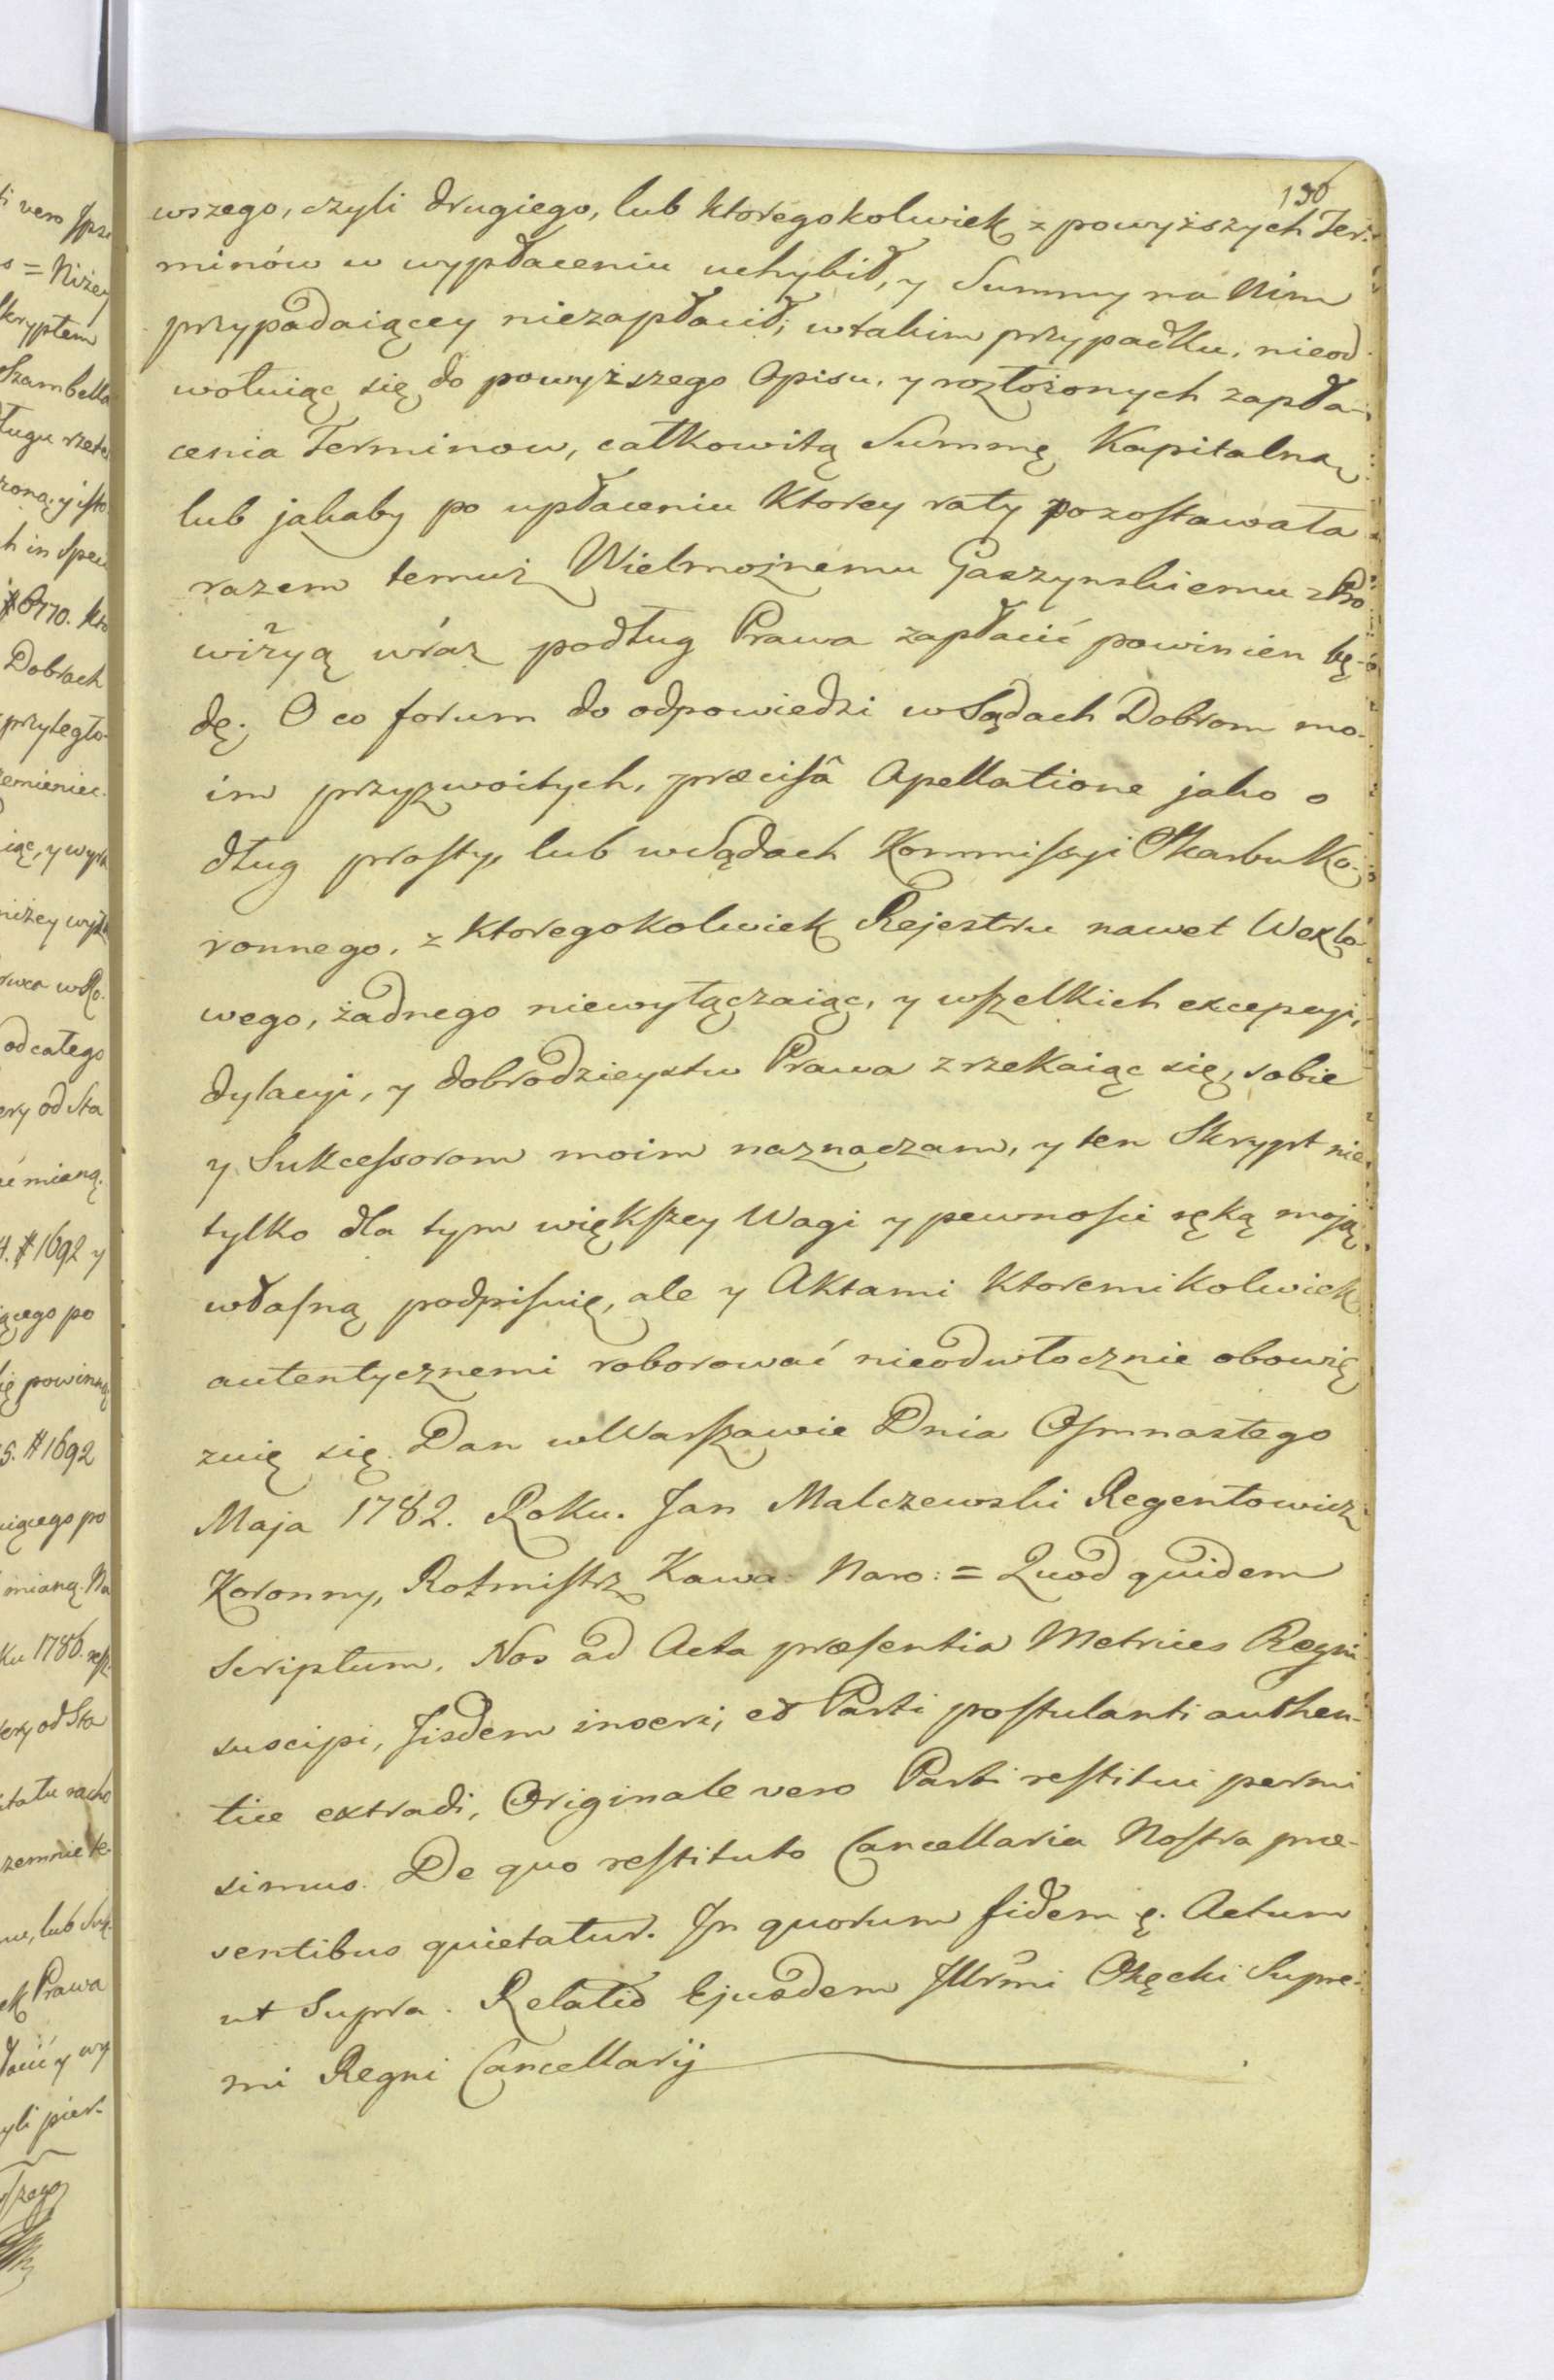 136
wszego, czyli drugiego, lub ktoregokolwiek z powyższych Ter-
minów w wypłaceniu uchybił, y Summy na Nim
przypadaiącey niezapłacił; w takim przypadku, nieod
wołuiąc się do powyższego Opisu, y rozłożonych zapła-
cenia Terminow, całkowitą Summę Kapitalną
lub jakaby po upłaceniu Ktorey raty pozostawała
razem temuż Wielmożnemu Gaszynskiemu z Pro
wizyą wraz podług Prawa zapłacić powinien bę-
dę. O co forum do odpowiedzi w Sądach Dobrom mo-
im przyzwoitych, præcisâ Apellatione jako o
dług prosty, lub w Sądach Kommissyi Skarbu Ko-
ronnego, z ktoregokolwiek Rejestru nawet Wexlo
wego, żadnego niewyłączaiąc, y wszelkich excepcyi,
dylacyi, y dobrodzieystw Prawa zrzekaiąc się, sobie
y Sukcessorom moim naznaczam, y ten Skrypt nie
tylko dla tym większey Wagi y pewności ręką moją
własną podpisuię, ale y Aktami Ktoremikolwiek
autentycznemi roborować nieodwłocznie obowię
zuię się. Dan w Warszawie Dnia Osmnastego
Maja 1782. Roku. Jan Malczewski Regentowicz
Koronny, Rotmistrz Kawa: Naro: = Quod quidem
Scriptum, Nos ad Acta præsentia Metrices Regni
suscipi, Jisdem inseri, et Parti postulanti authen-
tice extradi, Originale vero Parti restitui permi
simus. De quo restituto Cancellaria Nostra præ-
sentibus quietatur. In quorum fidem ę. Actum
ut Supra. Relatio Ejusdem Jllrmi Okęcki Supre-
mi Regni Cancellarij